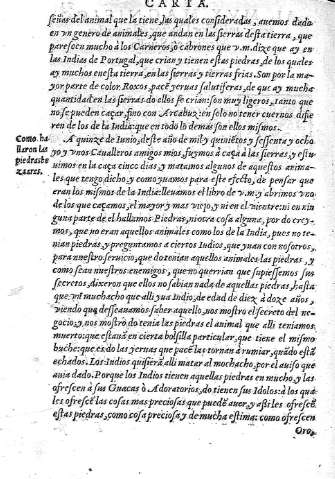 CARTA.
señas del animal que la tiene, las quales consideradas, auemos dado
en vn genero de animales, que andan en las sierras desta tierra, que
parescen mucho à los Carneros, ò cabrones que v.m. dize que ay en
las Indias de Portugal, que crian y tienen estas piedras, de los quales
ay muchos en esta tierra, en las sierras y tierras frias. Son por la ma
yor parte de color Roxos, pacē yeruas salutiferas, de que ay mucha
quantidad en las sierras do ellos se crian: son muy ligeros, tanto que
no se pueden caçar, sino con Arcabuz: en solo no tener cuernos difie
ren de los de la India: que en todo lo demas son ellos mismos.
A quinze de Iunio, deste año de mil y quiniētos y sessenta y ocho
yo y vnos Caualleros amigos mios, fuymos à caça à las sierras, y estu
uimos en la caça cinco dias, y matamos algunos de aquestos anima-
les que tengo dicho, y como yuamos para este efecto, de pensar que
eran los mismos de la India: lleuamos el libro de v.m. y abrimos vno
de los que caçamos, el mayor y mas viejo, y ni en el vientre: ni en nin
guna parte de el hallamos Piedras, ni otra cosa alguna, por do crey-
mos, que no eran aquellos animales como los de la India, pues no te-
nian piedras, y preguntamos a ciertos Indios, que yuan con nosotros,
para nuestro seruicio, que do tenian aquellos animales las piedras, y
como sean nuestros enemigos, que no querrian que supiessemos sus
secretos, dixeron que ellos no sabian nada de aquellas piedras, hasta
que vn muchacho que alli yua Indio, de edad de diez à doze años,
viendo que desseauamos saber aquello, nos mostrò el secreto del ne-
gocio, y nos mostrò do tenia las piedras el animal que alli teniamos
muerto: que estauā en cierta bolsilla particular, que tiene el mismo
buche: que es do las yeruas que pacē las tornan à rumiar, quādo estā
echados. Los Indios quisierā alli matar al mochacho, por el auiso que
auia dado. Porque los Indios tienen aquellas piedras en mucho, y las
ofrescen à sus Guacas ò Adoratorios, do tienen sus Idolos: à los qua-
les ofrescē las cosas mas preciosas que puedē auer, y assi les ofrescē
estas piedras, como cosa preciosa y de mucha estima: como ofrescen
Oro,
Como ha
llaron las
piedras be
zaares.